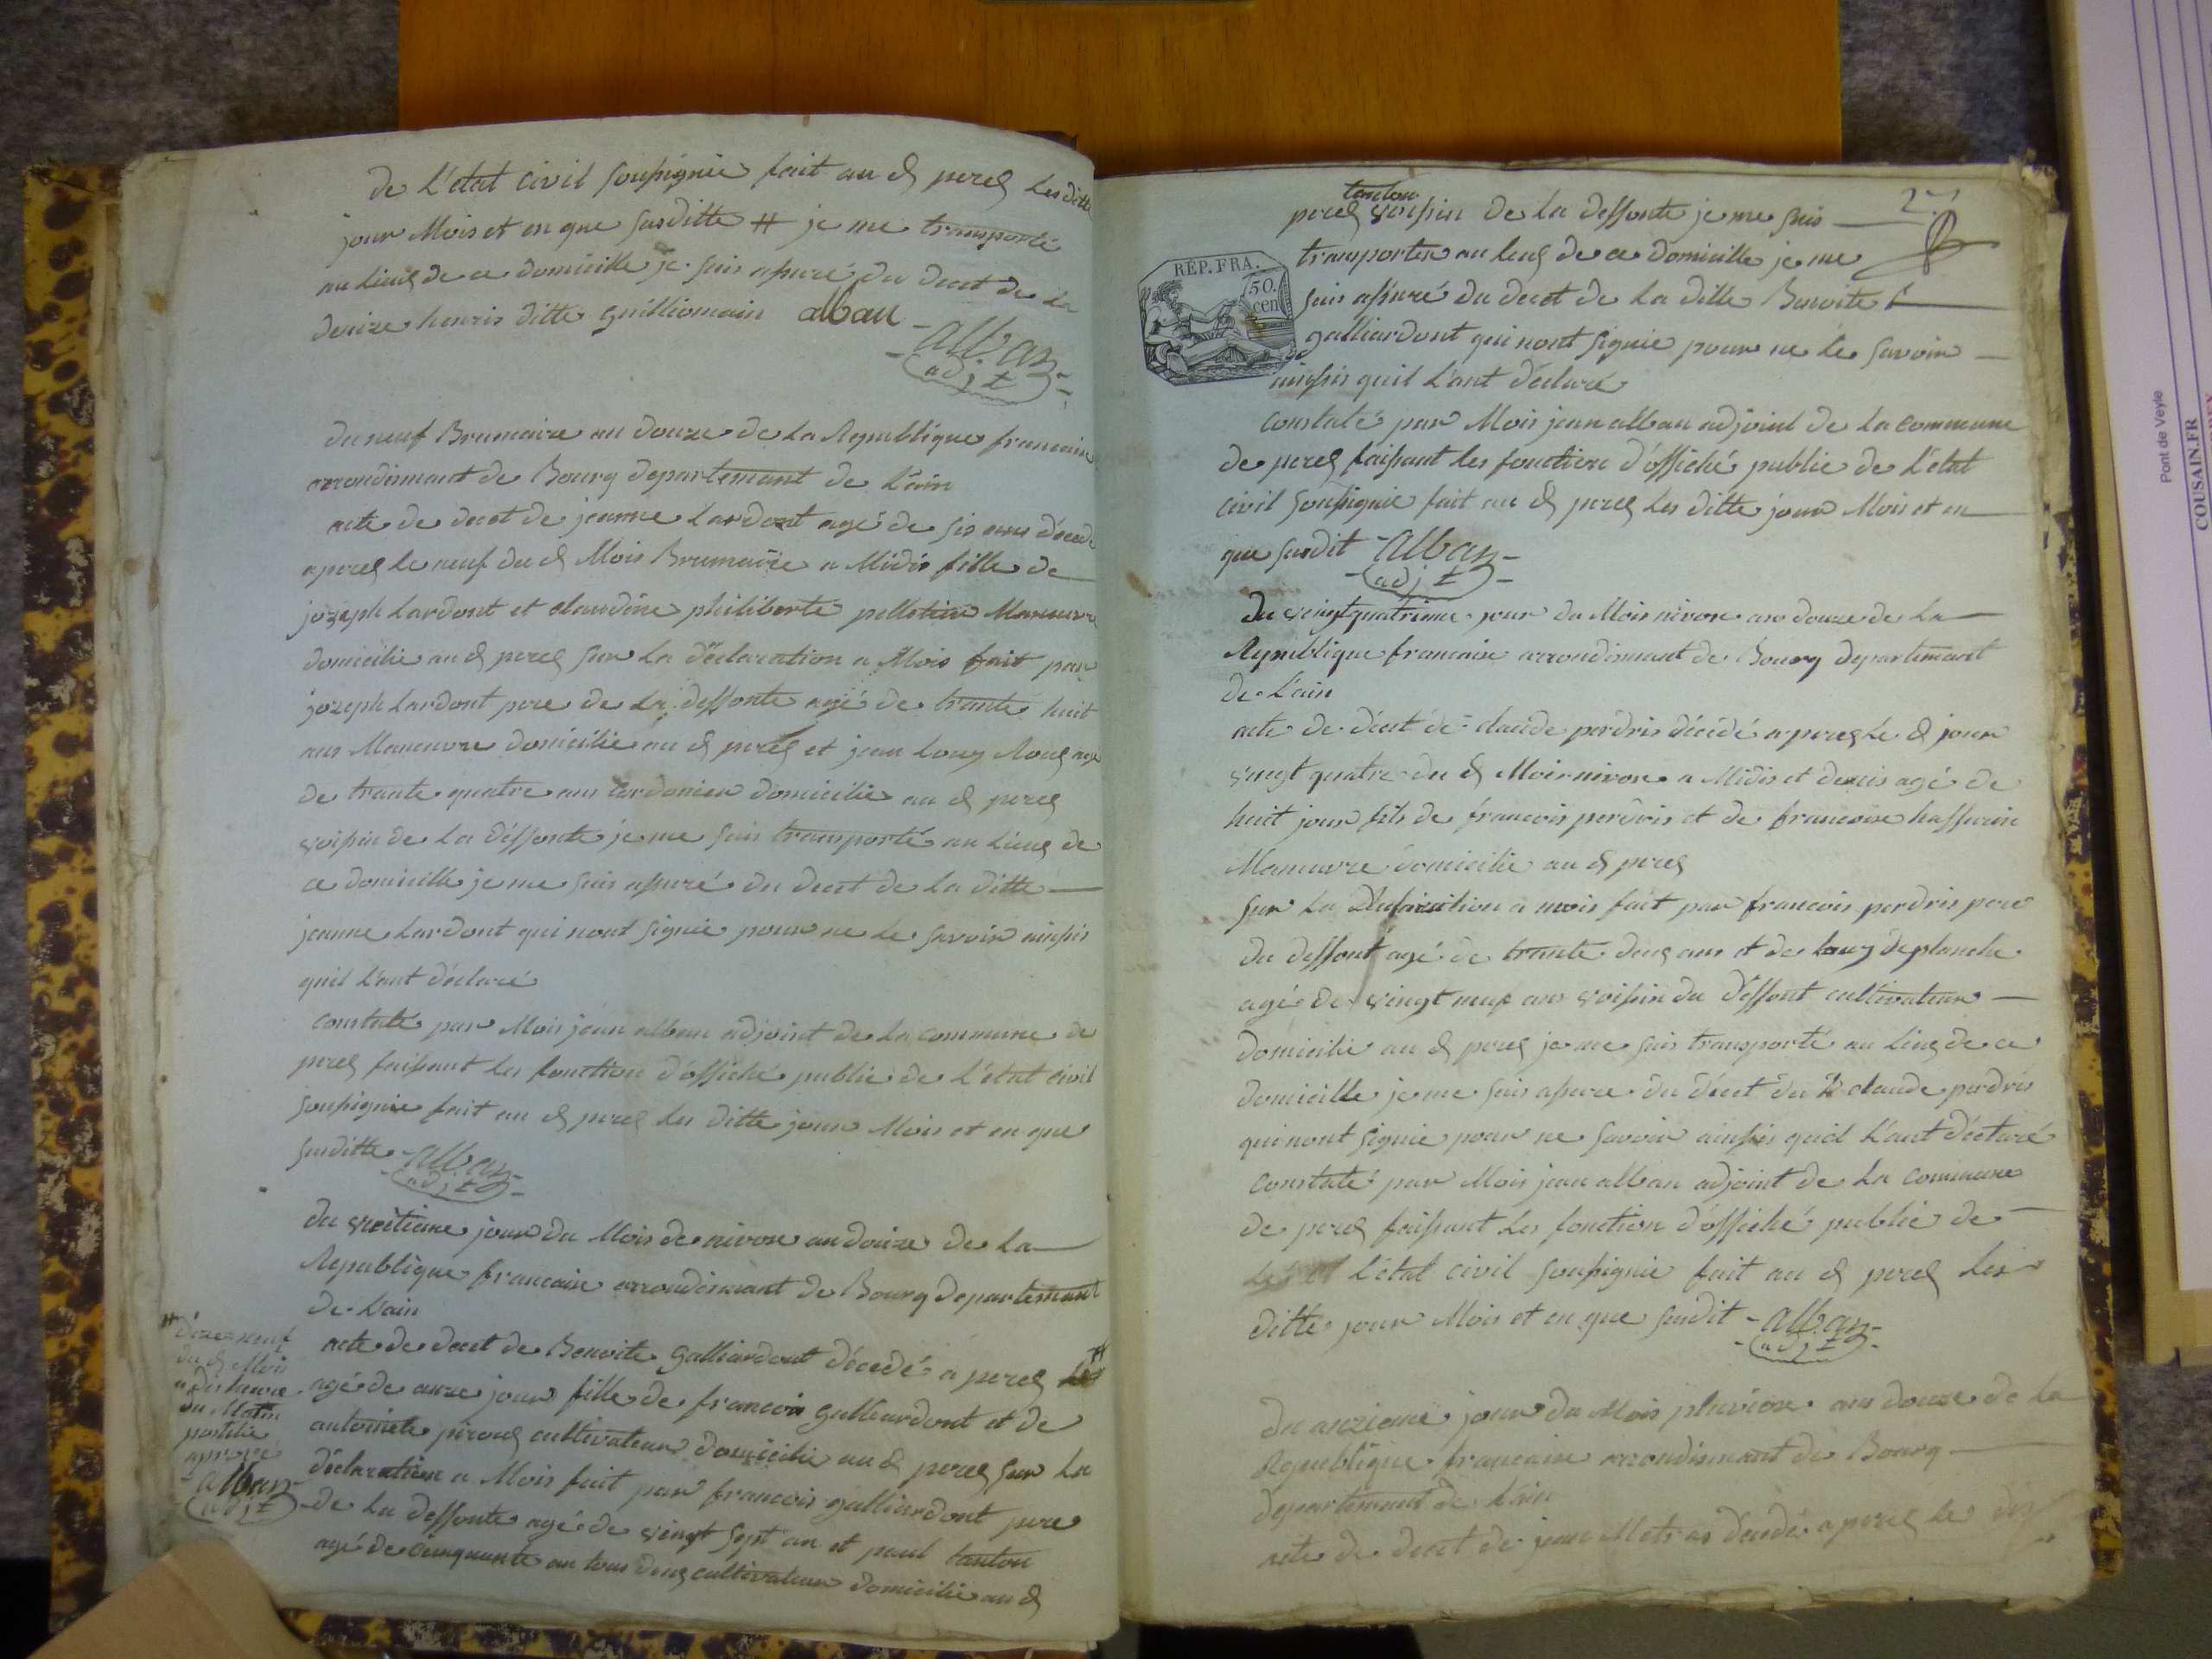 de L'etat civil soussignie fait au d perex Les ditte
jour Mois et en que susditte # je me transporté
au Lieux de ce domicille je suis assuré du decet de La
denize henris ditte guilliomain alban
alban
adjt
du neuf Brumaire an douze de La Republique francaise
arrondismant de Bourg departemant de L'ain
acte de decet de jeanne Lardont agé de sis ans décedé
a perex le neuf du d Mois Brumaire a Midis fille de
jozeph Lardont et claudine philiberte pelletier Maneuvre
domicilie au d perex sur La déclaration a Mois fait par
jozeph Lardont pere de La deffonte agé de trante huit
ans Maneuvre domicilie au d perex et jean Louy Roux agé
de trante quatre ans cardonier domicilie au d perex
voisin de La déffonte je me suis transporté au Lieux de
ce domicille je me suis assuré du decet de La ditte
jeanne Lardont qui nont signie pour ne Le savoir ainssis
quil L'ant déclaré
constaté par Mois jean alban adjoint de La commune de
perex faissant Les fonction d'offiché public de L'état civil
soussignie fait au d perex Les ditte jour Mois et en que
susditte alban
adjt
du ventieme jour du Mois de nivose an douze de La
Republique francaise arrondismant de Bourg departemant
de L'ain
acte de decet de Benoite galliardont décedé a perex #
agé de onze jour fille de francois galliardont et de
antoinete piroux cultivateur domicilie au d perex sur La
déclaration a Mois fait par francois galliardont pere
de La deffonte agé de vingt sept an et paul tanton
agé de cinquante an tous deux cultivateur domicilie au d
# dize neuf
du d Mois
a dis heure
du Matin
postilie
aprové
alban
adjt
27
tanton
perex voisin de La deffonte je me suis
transporter au Leux de ce domicille je me
suis assuré du decet de La ditte Benoite
galliardont qui nont signie pour ne Le savoir
ainssis quil L'ant déclaré
REP. FRA.
50.
cen
constaté par Mois jean alban adjoint de La commune
de perex faissant Les fonction d'offiché public de L'état
civil soussignie fait au d perex Les ditte jour Mois et en
que susdit alban
adjt
du vingtquatrieme jour du Mois nivose an douze de La
Republique francaise arrondismant de Bourg departemant
de L'ain
acte de décet de claude perdris décédé a perex Le d jour
vingt quatre du d Mois nivose a Midis et demis agé de
huit jour fils de francois perdris et de francoise
Maneuvre domicilie au d perex
sur La a mois fait par francois perdris pere
du deffont agé de trante deux ans et de Louy deplanche
agé de vingt neuf ans voisin du déffont cultivateur
domicilie au d perex je me suis transporté au Lieux de ce
domicille je me suis assure du décet du d claude perdris
qui nont signie pour ne savoir ainssis quil L'ant déclaré
constaté par Mois jean alban adjoint de La commune
de perex faissant Les fonction d'offiché public de
L'état civil soussignie fait au d perex Les
ditte jour Mois et en que susdit alban
adjt
du onzieme jour du Mois pluviose ans douze de La
Republique francaise arrondismant de Bourg
departemant de L'ain
acte de decet de jean décédé a perex le dix
Pont de Veyle
COUSAIN.FR